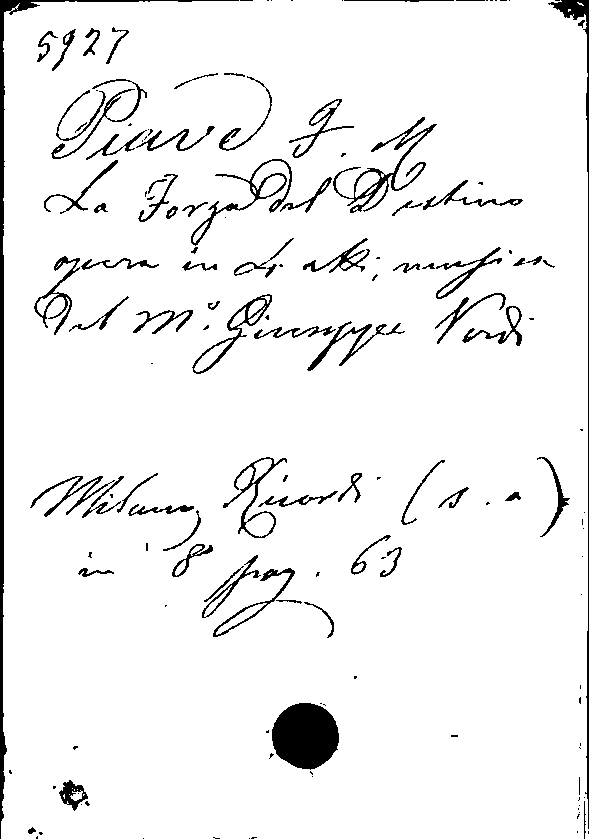 5927
Piave F. M
La Forza del Destino
opera in 4 atti, musica
del M.° Giuseppe Verdi
Milano, Ricordi (s. a)
in 8° pag. 63